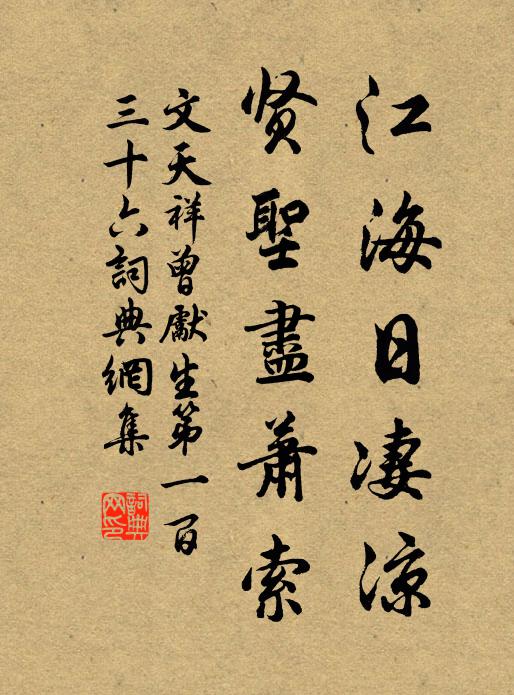 江海日凄凉
贤聖盡萧索
文天祥曾獻生第一百
三十六詞典網集
詞典網印